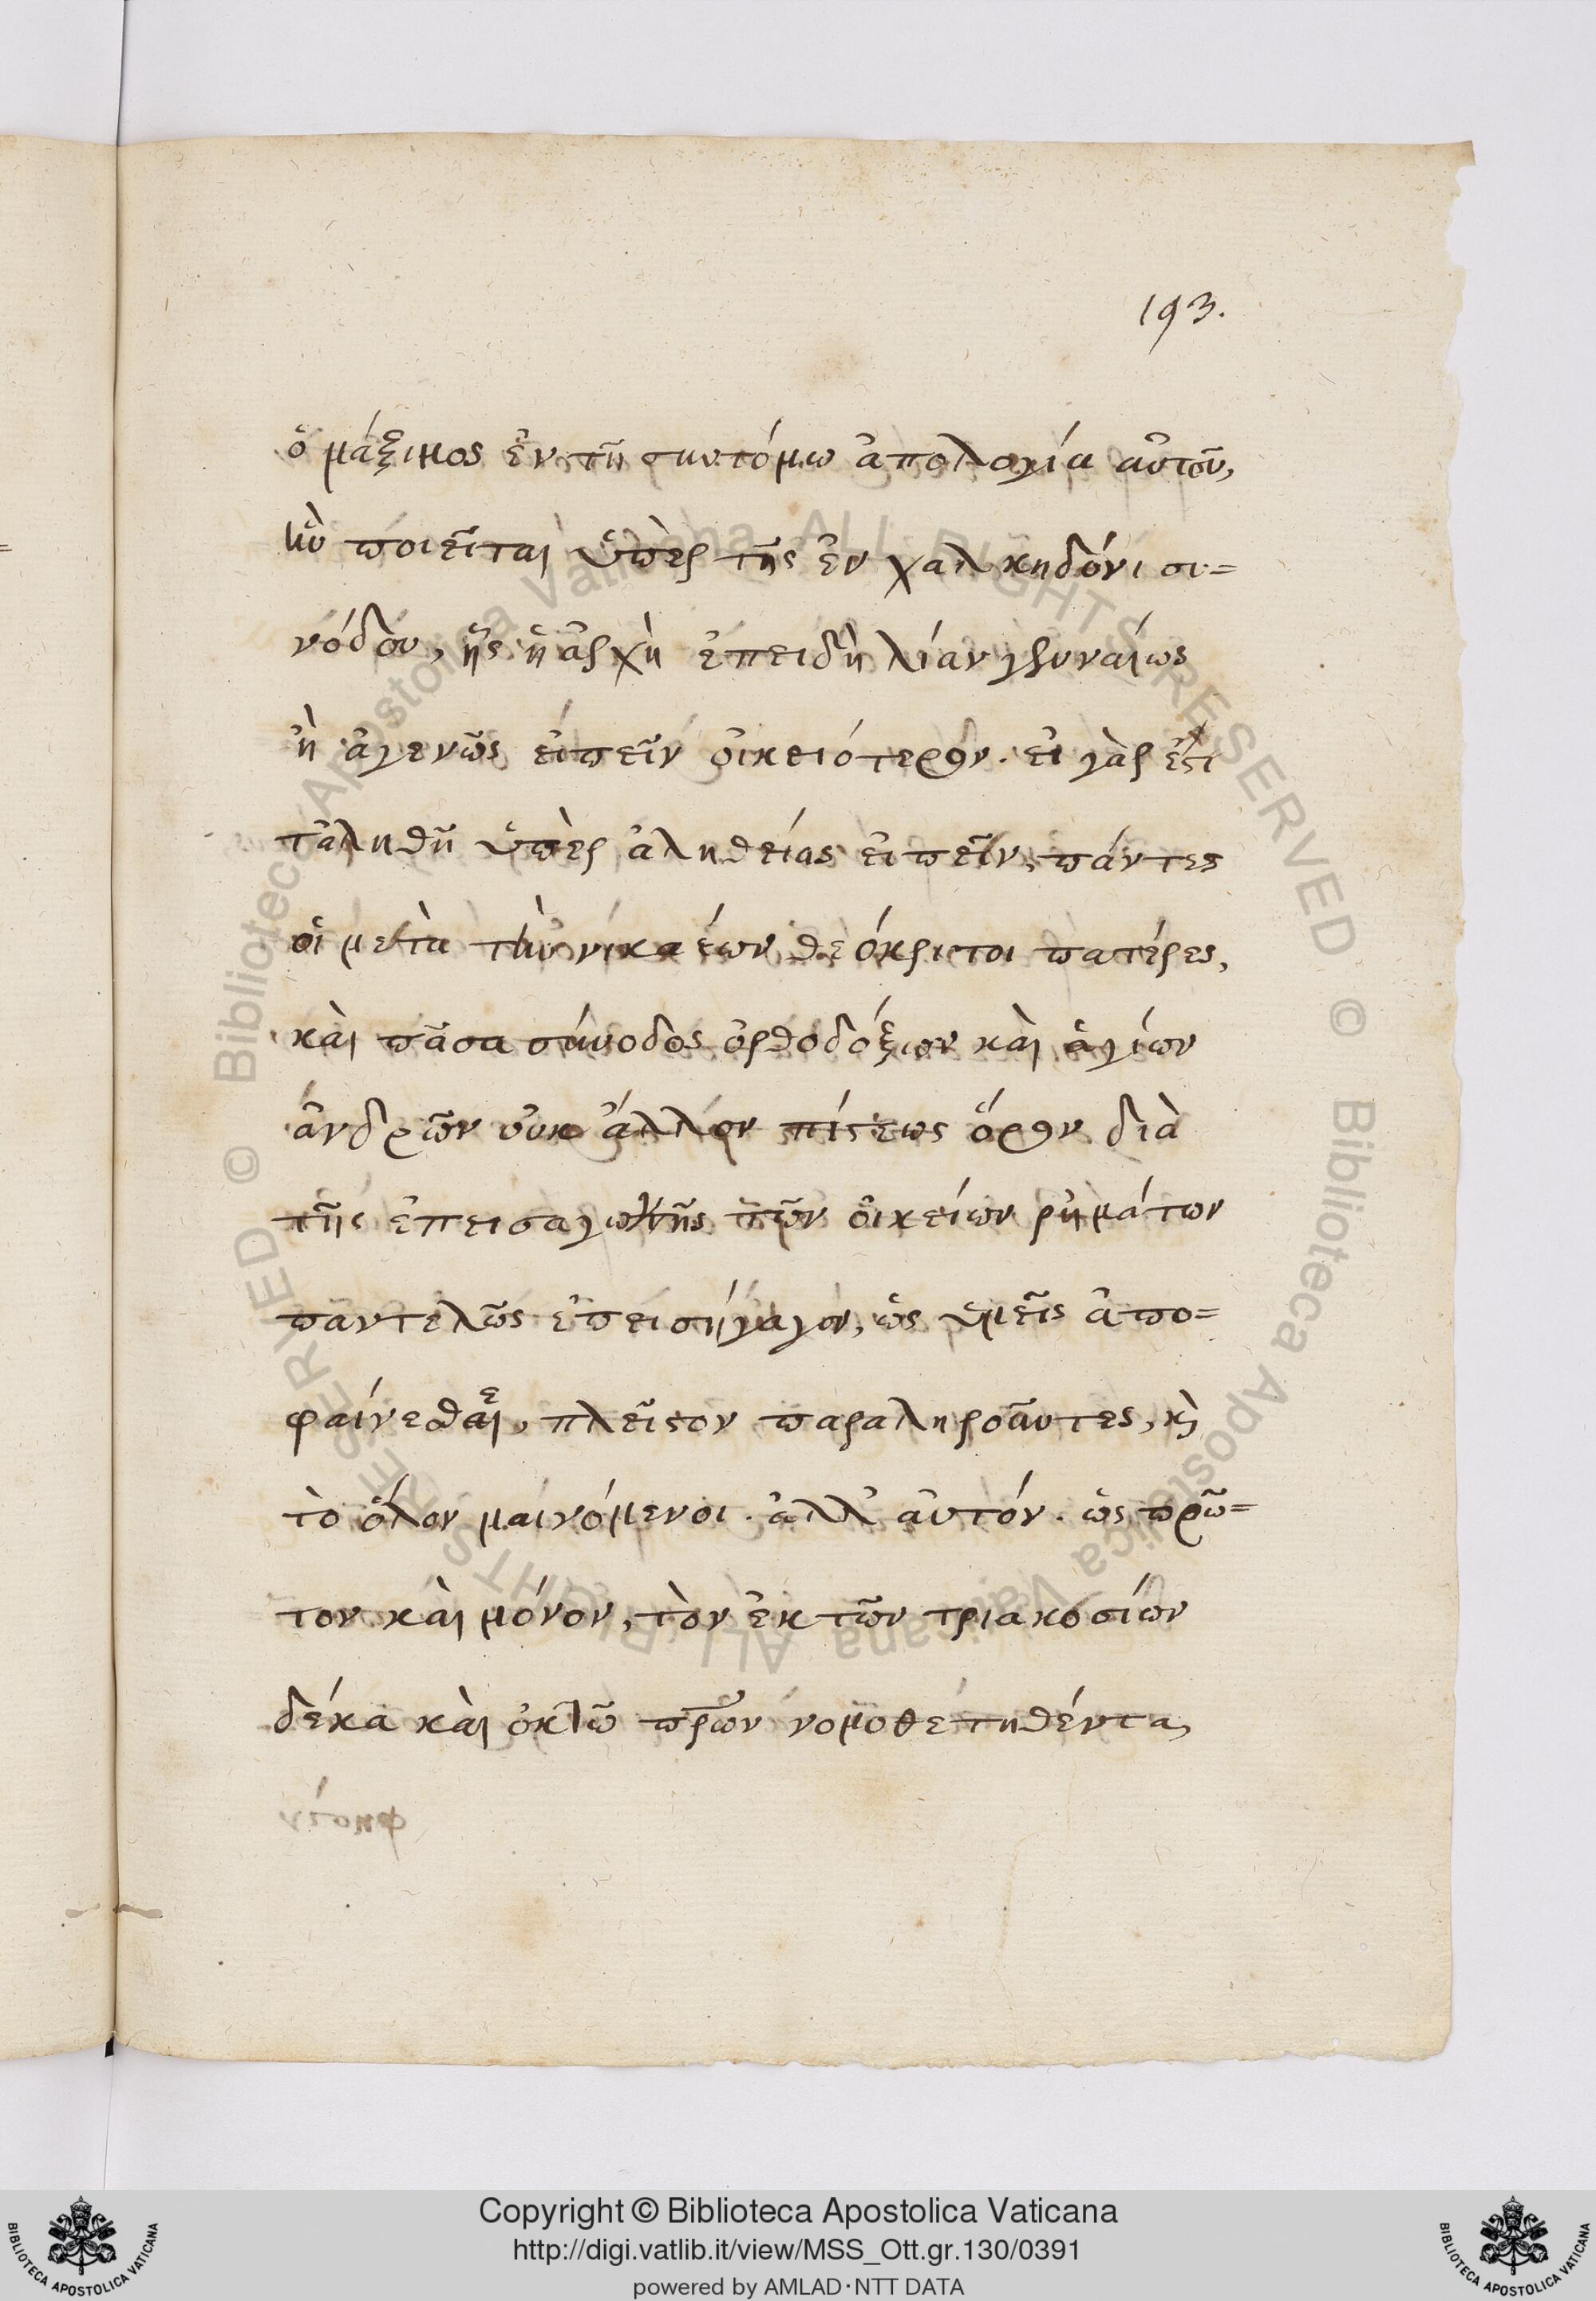 193.
ὁ μάξιμος ἐν τῆ συντόμω ἀπολογία αὐτοῦ,
ἣν ποιεῖται ὑπὲρ τῆς ἐν χαλκηδόνι συ=
νόδου, ἧς ἡ ἀρχὴ ἐπειδὴ λίαν γενναίως
ἢ ἀγενῶς εἰπεῖν οἰκειότερον. εἰ γὰρ ἐστι
τἀληθῆ ὑπὲρ ἀληθείας εἰπεῖν, πάντες
οἱ μετὰ τὴν νικαέων θεόκριτοι πατέρες,
καὶ πᾶσα σύνοδος ὀρθοδόξων καὶ ἁγίων
ἀνδρῶν οὐκ ἄλλον πίστεως ὅρον διὰ
τῆς ἐπεισαγωγῆς τῶν οἰκείων ρημάτων
παντελῶς ἐπεισήγαγον, ὡς ὑμεῖς ἀπο=
φαίνεσθαι ε, πλεῖστον παραληροῦντες, κὶ
τὸ ὅλον μαινόμενοι. ἀλλ' αὐτόν. ὡς πρῶ=
τον καὶ μόνον, τὸν ἐκ τῶν τριακοσίων
δέκα καὶ ὀκτῶ πρων νομοθετηθέντα,
Copyright © Biblioteca Apostolica Vaticana
http://digi.vatlib.it/view/MSS_Ott.gr.130/0391
powered by AMLAD·NTT DATA
BIBLIOTECA APOSTOLICA VATICANA
BIBLIOTECA APOSTOLICA VATICANA
© Biblioteca Apostolica Vaticana ALL RIGHTS RESERVED
© Biblioteca Apostolica Vaticana ALL RIGHTS RESERVED